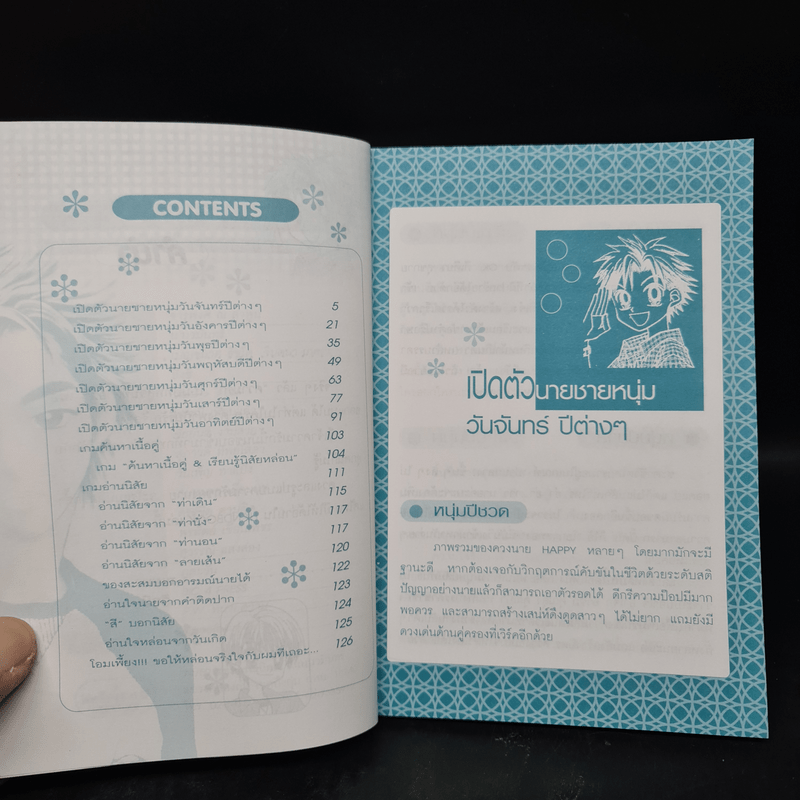 CONTENTS
เปิดตัวนายชายหนุ่มวันจันทร์ปีต่างๆ 5
เปิดตัวนายชายหนุ่มวันอังคารปีต่างๆ 21
เปิดตัวนายชายหนุ่มวันพุธปีต่างๆ 35
เปิดตัวนายชายหนุ่มวันพฤหัสบดีปีต่างๆ 49
เปิดตัวนายชายหนุ่มวันศุกร์ปีต่างๆ 63
เปิดตัวนายชายหนุ่มวันเสาร์ปีต่างๆ 77
เปิดตัวนายชายหนุ่มวันอาทิตย์ปีต่างๆ 91
เกมค้นหาเนื้อคู่ 103
เกม "ค้นหาเนื้อคู่ & เรียนรู้นิสัยหล่อน" 104
เกมอ่านนิสัย 111
อ่านนิสัยจาก "ท่าเดิน" 115
อ่านนิสัยจาก "ท่านั่ง" 117
อ่านนิสัยจาก "ท่านอน" 117
อ่านนิสัยจาก "ลายเส้น" 120
ของสะสมบอกอารมณ์นายได้ 122
อ่านใจนายจากคำติดปาก 123
"สี" บอกนิสัย 124
อ่านใจหล่อนจากวันเกิด 125
โอมเพี้ยง!!! ขอให้หล่อนจริงใจกับผมทีเถอะ... 126
เปิดตัวนายชายหนุ่ม
วันจันทร์ ปีต่างๆ
หนุ่มปีชวด
ภาพรวมของดวงนาย HAPPY หลายๆ โดยมากมักจะมี
ฐานะดี หากต้องเจอกับวิกฤตการณ์คับขันในชีวิตด้วยระดับสติ
ปัญญาอย่างนายแล้วก็สามารถเอาตัวรอดได้ ดีกรีความป๊อปมีมาก
พอควร และสามารถสร้างเสน่ห์ดึงดูดสาวๆ ได้ไม่ยาก แถมยังมี
ดวงเด่นด้านคู่ครองที่เวิร์คอีกด้วย